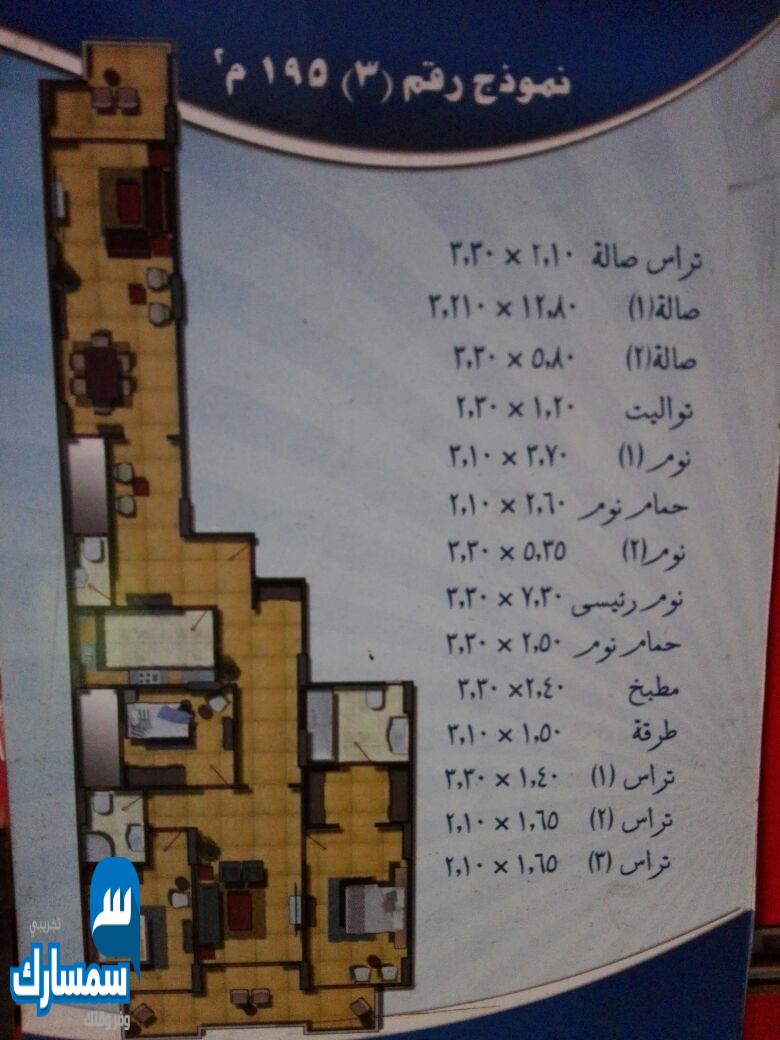 نموذج رقم (٣) ١٩٥ م٢
تراس صالة ٢,١٠ × ٣,٣٠
صالة(١) ١٢,٨٠ × ٣,٢١٠
صالة(٢) ٥,٨٠ × ٣,٣٠
تواليت ١,٢٠ × ٢,٣٠
نوم (١) ٣,٧٠ × ٣,١٠
حمام نوم ٢,٦٠ × ٢,١٠
نوم(٢) ٥,٣٥ × ٣,٣٠
نوم رئيسى ٧,٣٠ × ٣,٣٠
حمام نوم ٢,٥٠ × ٣,٣٠
مطبخ ٢,٤٠ × ٣,٣٠
طرقة ١,٥٠ × ٣,١٠
تراس (١) ١,٤٠ × ٣,٣٠
تراس (٢) ١,٦٥ × ٢,١٠
تراس (٣) ١,٦٥ × ٢,١٠
تجريبي
سمسارك
وفر وقتك